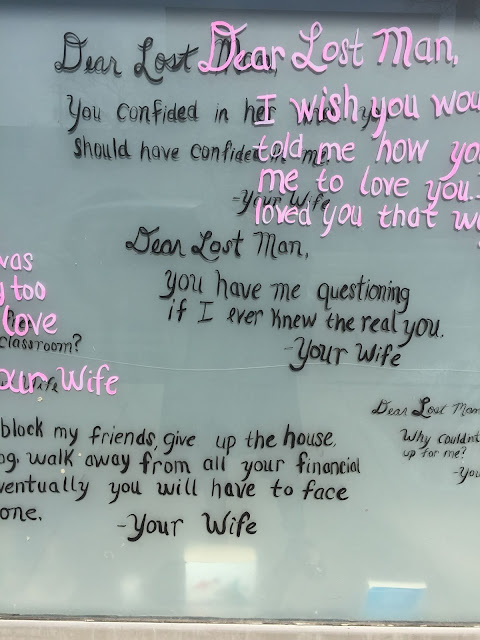 Dear Lost
You confided in her
should have confided in me.
-Your Wife
Dear Lost Man,
I wish you
told me how
me to love you.
loved you that
Dear Lost Man,
you have me questioning
if I ever knew the real you.
-Your Wife
was
too
love
classroom?
Your Wife
block my friends, give up the house,
walk away from all your financial
you will have to face
one.
-Your Wife
Dear Lost Man
Why
up for me?